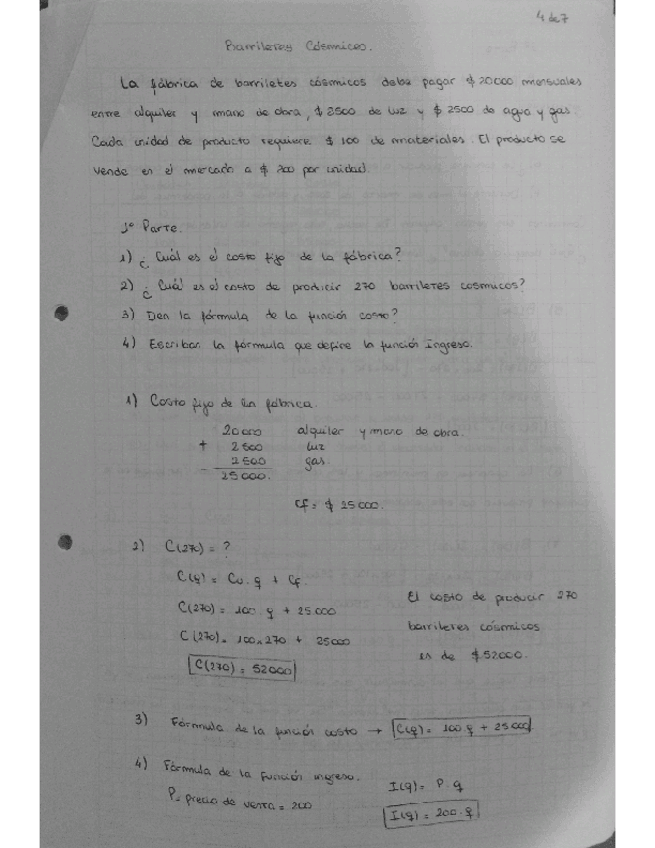 4 de 7
Barriletes Cósmicos.
La fábrica de barriletes cósmicos debe pagar $ 20000 mensuales
entre alquiler y mano de obra, $ 2500 de luz y $ 2500 de agua y gas.
Cada unidad de producto requiere $ 100 de materiales. El producto se
vende en el mercado a $ 200 por unidad.
1º Parte.
1) ¿Cuál es el costo fijo de la fábrica?
2) ¿Cuál es el costo de producir 270 barriletes cosmicos?
3) Den la fórmula de la función costo?
4) Escriban la fórmula que define la función Ingreso.
1) Costo fijo de la fábrica.
20000 alquiler y mano de obra.
+ 2500 luz
2500 gas.
25000.
Cf = $ 25000.
2) C(270) = ?
C(q) = Cu . q + Cf.
C(270) = 100 . q + 25000
C(270) = 100 x 270 + 25000
C(270) = 52000
El costo de producir 270
barriletes cósmicos
es de $52000.
3) Fórmula de la función costo → C(q) = 100 . q + 25000
4) Fórmula de la función ingreso.
P = precio de venta = 200
I(q) = P . q
I(q) = 200 . q